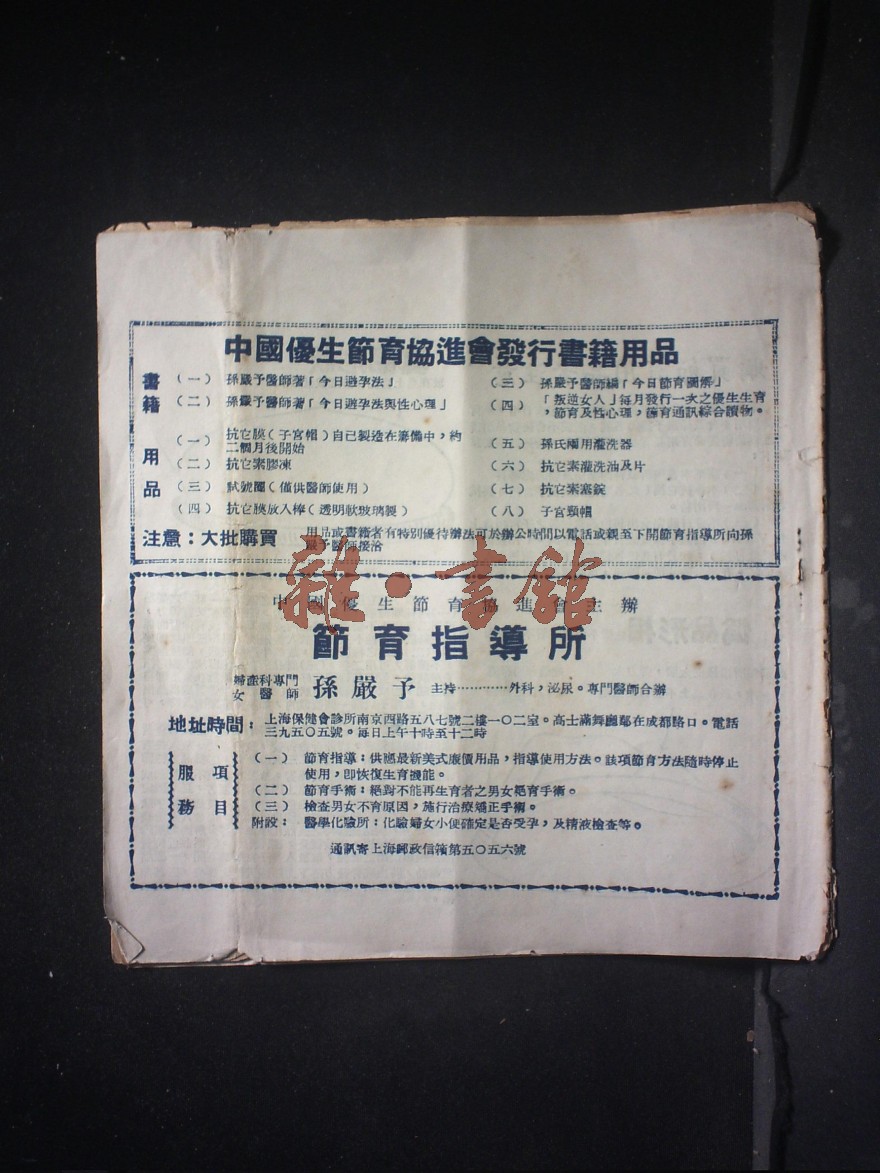 中國優生節育協進會發行書籍用品
書籍
（一） 孫嚴予醫師著「今日避孕法」
（二） 孫嚴予醫師著「今日避孕法與性心理」
（三） 孫嚴予醫師編「今日節育圖解」
（四） 「叛逆女人」每月發行一次之優生生育
，節育及性心理，節育通訊綜合讀物。
用品
（一） 抗它膜（子宮帽）自己製造在籌備中，約
二個月後開始
（二） 抗它素膠凍
（三） 試號圈（僅供醫師使用）
（四） 抗它膜放入棒（透明軟玻璃製）
（五） 孫氏兩用灌洗器
（六） 抗它素灌洗油及片
（七） 抗它素塞錠
（八） 子宮頸帽
注意：大批購買 用品或書籍者有特別優待辦法可於辦公時間以電話或親至下開節育指導所向孫
嚴予醫師接洽
雜·書館
中國優生節育協進會主辦
節育指導所
婦產科專門
女醫師 孫嚴予 主持…………外科，泌尿。專門醫師合辦
地址時間： 上海保健會診所南京西路五八七號二樓一〇二室。高士滿舞廳鄰在成都路口。電話
三九五〇五號。每日上午十時至十二時
服務項目
（一） 節育指導：供應最新美式廉價用品，指導使用方法。該項節育方法隨時停止
使用，卽恢復生育機能。
（二） 節育手術：絕對不能再生育者之男女絕育手術。
（三） 檢查男女不育原因，施行治療矯正手術。
附設： 醫學化驗所：化驗婦女小便確定是否受孕，及精液檢查等。
通訊寄上海郵政信箱第五〇五六號